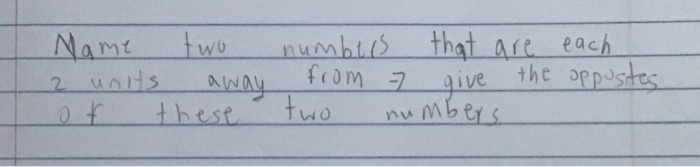 Name two numbers that are each
2 units away from 7 give the oppostes
of these two numbers